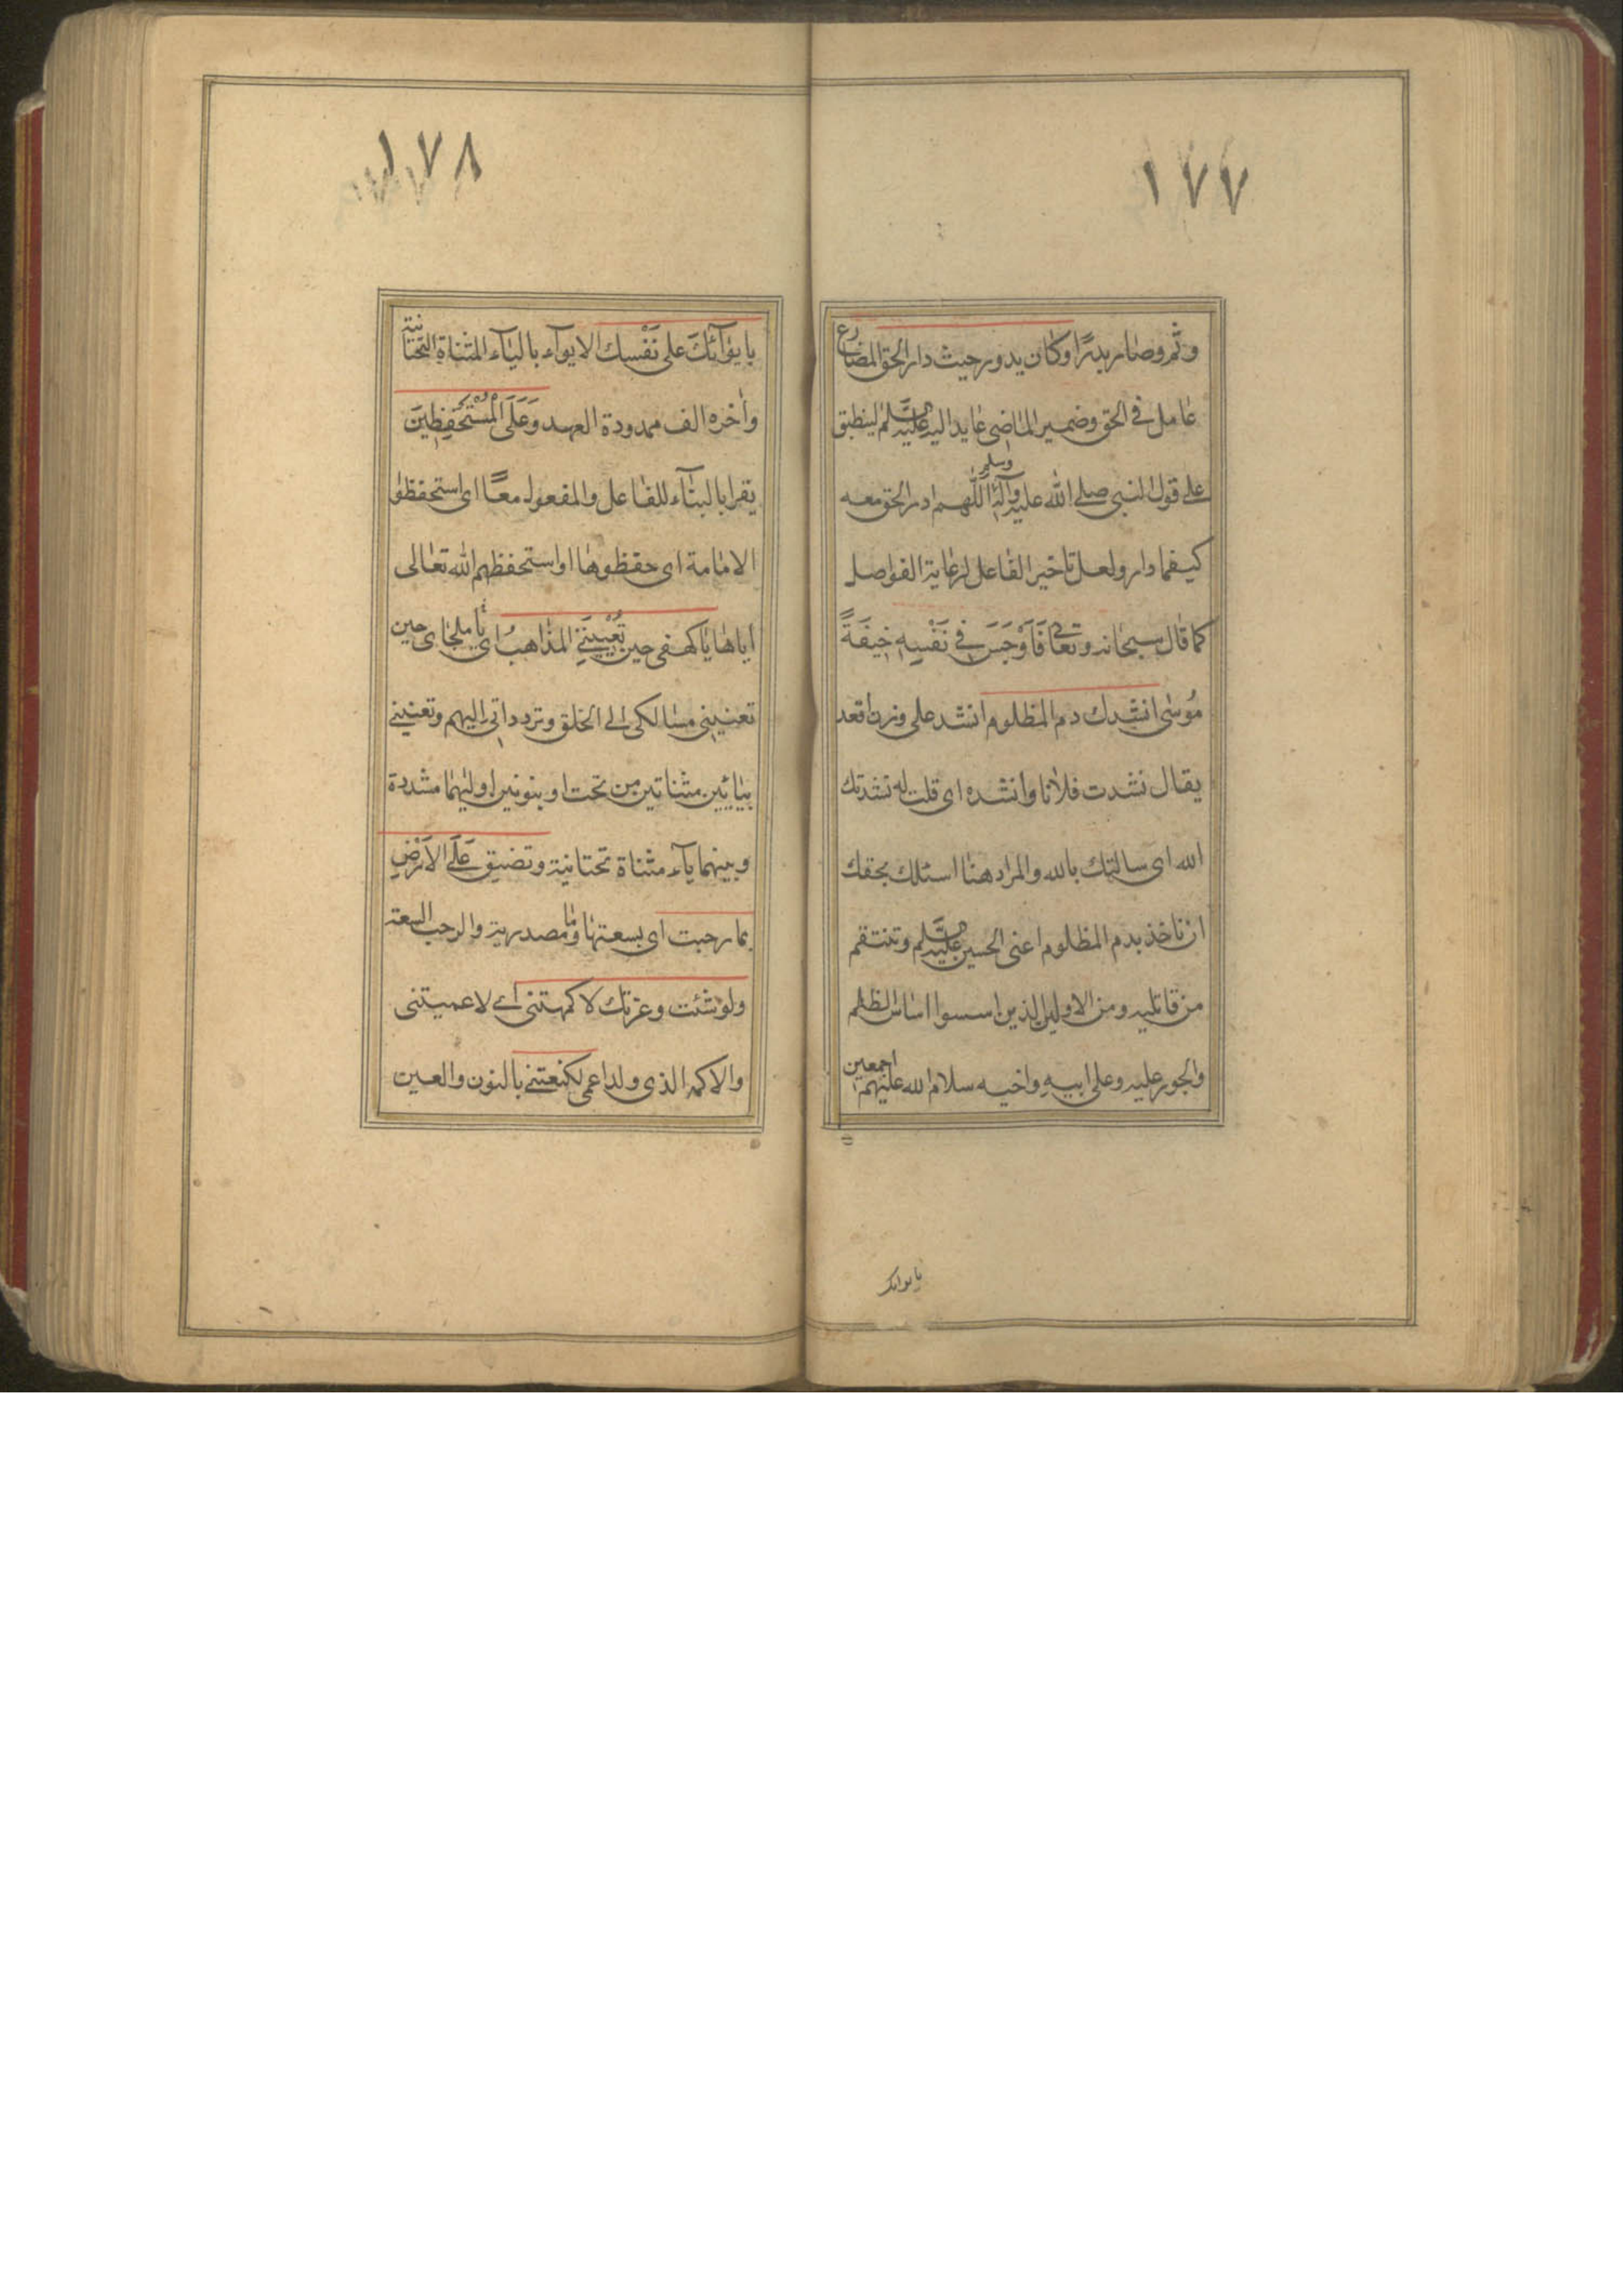 ١٧٧
وتم وصار بدرًا وكان يدور حيث دار الحق المضارع
عامل في الحق وضمير الماضي عايد اليه عليه السلم لينطبق
على قول النبي صلى الله عليه وآله وسلم اللهم ادر الحق معه
كيفما دار ولعل تاخير الفاعل لرعاية الفواصل
كما قال سبحانه وتعالى فَاَوْجَسَ في نَفْسِهِ خيفَةً
مُوسٰى انشدك دم المظلوم انشد على وزن اقعد
يقال نشدت فلانا وانشده اى قلت له نشدتك
الله اى سالتك بالله والمراد هنا اسئلك بحقك
ان تاخذ بدم المظلوم اعنى الحسين عليه السلم وتنتقم
من قاتليه ومن الاولين الذين اسسوا اساس الظلم
والجور عليه وعلى ابيه واخيه سلام الله عليهم اجمعين
بايوائك
١٧٨
بايوآئكَ على نَفْسِك الايوآء بالياء المثناة التحتانية
وأخره الف ممدودة العهد وَعَلَى الْمُسْتَحْفِظِينَ
يقرا بالبناء للفاعل والمفعول معًا اى استحفظوا
الامامة اى حفظوها او استحفظهم الله تعالى
اياها يا كهفى حين تُعْيينى المذاهبُ اى يا ملجاى حين
تعيينى مسالكى الى الخلق وتردداتى اليهم وتعيينى
بيائين مثناتين من تحت او بنونين اوليهما مشددة
وبينهما ياء مثناة تحتانية وتضيق عَلَىَّ الاَرْضُ
بما رحبت اى بسعتها وما مصدرية والرحب السعة
ولو شئت وعزتك لاكمهتنى اى لاعميتنى
والاكمه الذى ولد اعمى لكنعتنى بالنون والعين